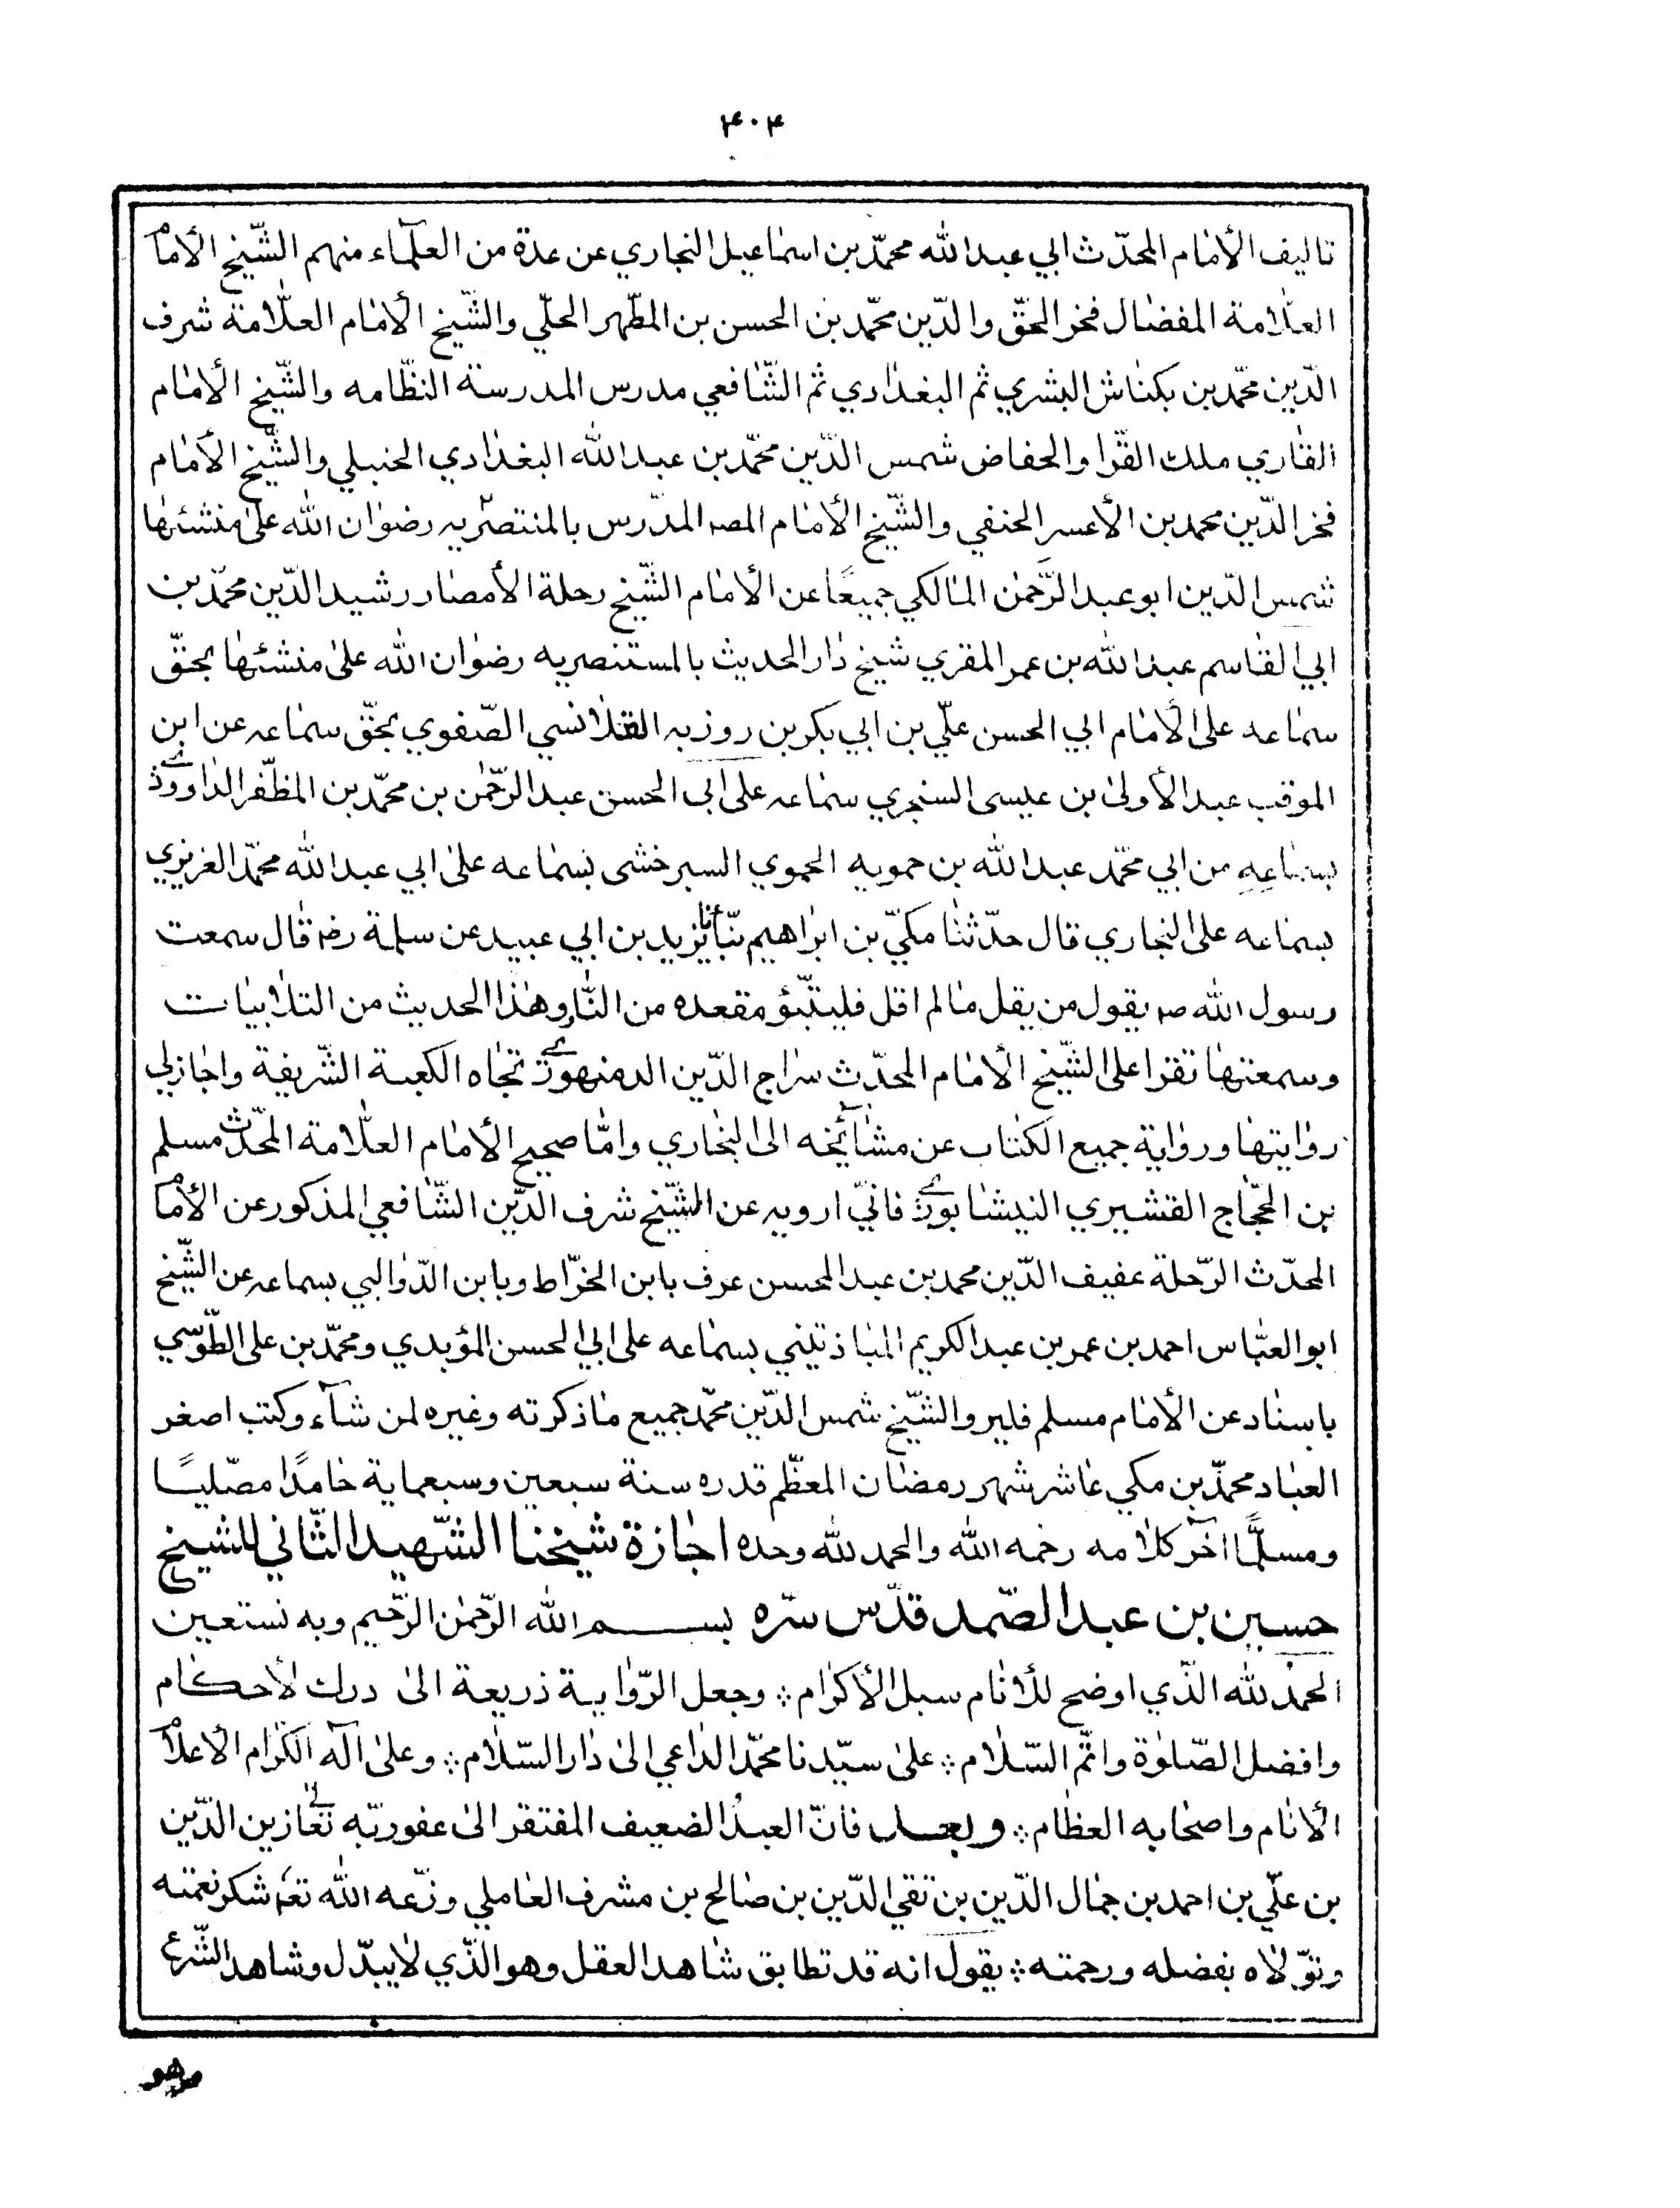 ٤٠٤
تاليف الأمام المحدّث ابي عبد الله محمّد بن اسماعيل البخاري عن عدة من العلمآء منهم الشّيخ الأمام
العلّامة المفضال فخر الحقّ والدّين محمّد بن الحسن بن المطّهر الحلّي والشّيخ الأمام العلّامة شرف
الدّين محمّد بن بكتاش البشري ثم البغدادي ثم الشّافعي مدرس المدرسة النظّامه والشّيخ الأمام
القاري ملك القرّا والحفاض شمس الدّين محمّد بن عبد الله البغدادي الحنبلي والشّيخ الأمام
فخر الدّين محمد بن الأعسر الحنفي والشّيخ الأمام المصه المدّرس بالمنتصرّيه رضوان الله على منشئها
شمس الدّين ابو عبد الرّحمن المالكي جميعًا عن الأمام الشّيخ رحلة الأمصار رشيد الدّين محمّد بن
ابي القاسم عبد الله بن عمر المقري شيخ دار الحديث بالمستنصريه رضوان الله على منشئها بحقّ
سماعه على الأمام ابي الحسن علّي بن ابي بكر بن روزبه القلانسي الصّفوي بحقّ سماعه عن ابن
الموقب عبد الأولى بن عيسى السنجري سماعه على ابي الحسن عبد الرّحمٰن بن محمّد بن المظّفر الداوودي
بسماعه من ابي محمّد عبد الله بن حمويه الحموي السرخشى بسماعه على ابي عبد الله محمّد الغريزي
بسماعه على البخاري قال حدّثنا مكيّ بن ابراهيم نبّأنا يزيد بن ابي عبيد عن سلمة رضه قال سمعت
رسول الله صه يقول من يقل مالم اقل فليتبّؤ مقعده من النّار وهذا الحديث من التلابيات
وسمعتها تقرا على الشّيخ الأمام المحدّث سراج الدّين الدمنهوري تجاه الكعبة الشّريفة واجازلي
روايتها ورواية جميع الكتاب عن مشآئخه الى البخاري وامّا صحيح الأمام العلّامة المحّدث مسلم
بن الحجّاج القشيري النيشابوري فانيّ ارويه عن الشّيخ شرف الدّين الشّافعي المذكور عن الأمام
المحدّث الرّحلة عفيف الدّين محمد بن عبد المحسن عرف بابن الخرّاط وبابن الدّواليبي بسماعه عن الشّيخ
ابو العبّاس احمد بن عمر بن عبد الكريم الباذتيني بسماعه على ابي الحسن المؤيدي ومحمّد بن على الطّوسّي
باسناد عن الأمام مسلم فليرو الشّيخ شمس الدّين محمّد جميع ماذكرته وغيره لمن شآء وكتب اصغر
العباد محمدّ بن مكي عاشر شهر رمضان المعظّم قدره سنة سبعين وسبعماية حامدًا مصّليًا
ومسلمًّا آخر كلامه رحمه الله والحمد لله وحده اجازة شيخنا الشّهيد الثّاني للشيخ
حسين بن عبد الصّمد قدّس سرّه بسم الله الرّحمٰن الرّحيم وبه نستعين
الحمد لله الذّي اوضح للأنام سبل الأكرام ⁘ وجعل الرّواية ذريعة الى درك الأحكام
وافضل الصّلوة واتّم السّلام ⁘ على سيّدنا محمّد الداعي الى دار السّلام ⁘ وعلى آله الكرام الأعلام
الأنام واصحابه العظام ⁘ وبعد فانّ العبد الضعيف المفتقر الى عفو ربّه تعالى زين الدّين
بن علّي بن احمد بن جمال الدّين بن تقي الدّين بن صالح بن مشرف العاملي وزّعه الله تعه شكر نعمته
وتوّلاه بفضله ورحمته ⁘ يقول انه قد تطابق شاهد العقل وهو الذّي لا يبدّل وشاهد الشّرع
وهو